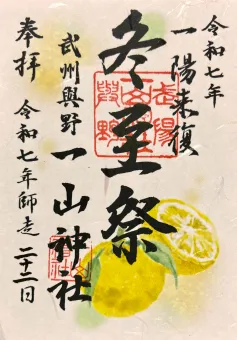 令和七年
一陽来復
冬至祭
武州與野
一山神社
奉拝
令和七年師走二十二日